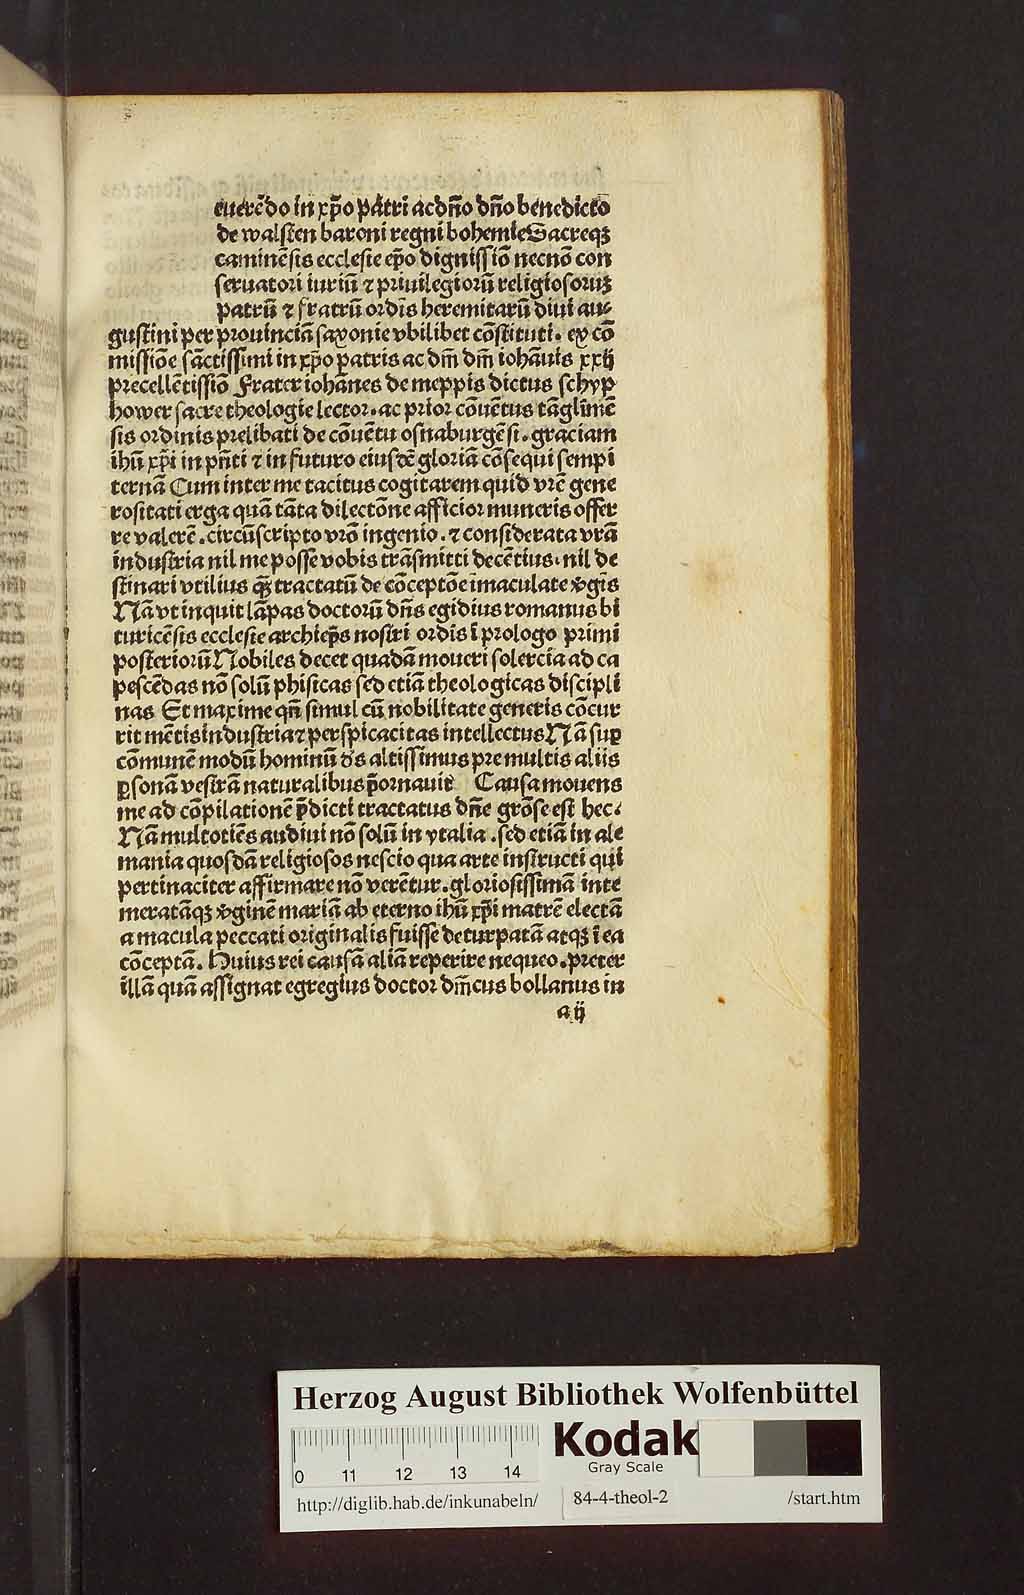 euerēdo in xp̄o patri ac dn̄o dn̄o benedicto
de walsten baroni regni bohemie Sacreqꝫ
caminēsis ecclesie ep̄o dignissiō necnō con
seruatori iuriū ⁊ priuilegiorū religiosorūꝫ
patrū ⁊ fratrū ordīs heremitarū diui au⸗
gustini per prouinciā saxonie vbilibet cōstituti. ex cō
missiōe sāctissimi in xp̄o patris ac dm̄ dm̄ iohānis xxij
precellētissiō Frater iohānes de meppis dictus schyp
hower sacre theologie lector. ac prior cōuētus tāglimē
sis ordinis prelibati de cōuētu osnaburgēsi. graciam
ihū xp̄i in pn̄ti ⁊ in futuro eiusdē gloriā cōsequi sempi
ternā Cum inter me tacitus cogitarem quid vr̄e gene
rositati erga quā tāta dilectōne afficior muneris offer
re valerē. circūscripto vr̄o ingenio. ⁊ considerata vr̄a
industria nil me posse vobis trāsmitti decētius. nil de
stinari vtilius qꝫ̄ tractatū de cōceptōe īmaculate v̄gīs
Nā vt inquit lāpas doctorū dn̄s egidius romanus bi
turicēsis ecclesie archiep̄s nostri ordīs ī prologo primi
posteriorū Nobiles decet quadā moueri solercia ad ca
pescēdas nō solū phisicas sed etiā theologicas discipli
nas Et maxime qn̄ simul cū nobilitate generis cōcur
rit mētis industria ⁊ perspicacitas intellectus Nā suꝑ
cōmunē modū hominū d̄s altissimus pre multis aliis
ꝑsonā vestrā naturalibus p̄ornauit Causa mouens
me ad cōpilationē p̄dicti tractatus dn̄e grōse est hec.
Nā multotiēs audiui nō solū in ytalia. sed etiā in ale
mania quosdā religiosos nescio qua arte instructi qui
pertinaciter affirmare nō verētur. gloriosissimā inte
meratāqꝫ v̄ginē mariā ab eterno ihū xp̄i matrē electā
a macula peccati originalis fuisse deturpatā atqꝫ ī ea
cōceptā. Huius rei causā aliā reperire nequeo. preter
illā quā assignat egregius doctor dm̄cus bollanus in
a ij
Herzog August Bibliothek Wolfenbüttel
Kodak
Gray Scale
0 11 12 13 14
http://diglib.hab.de/inkunabeln/ 84-4-theol-2 /start.htm